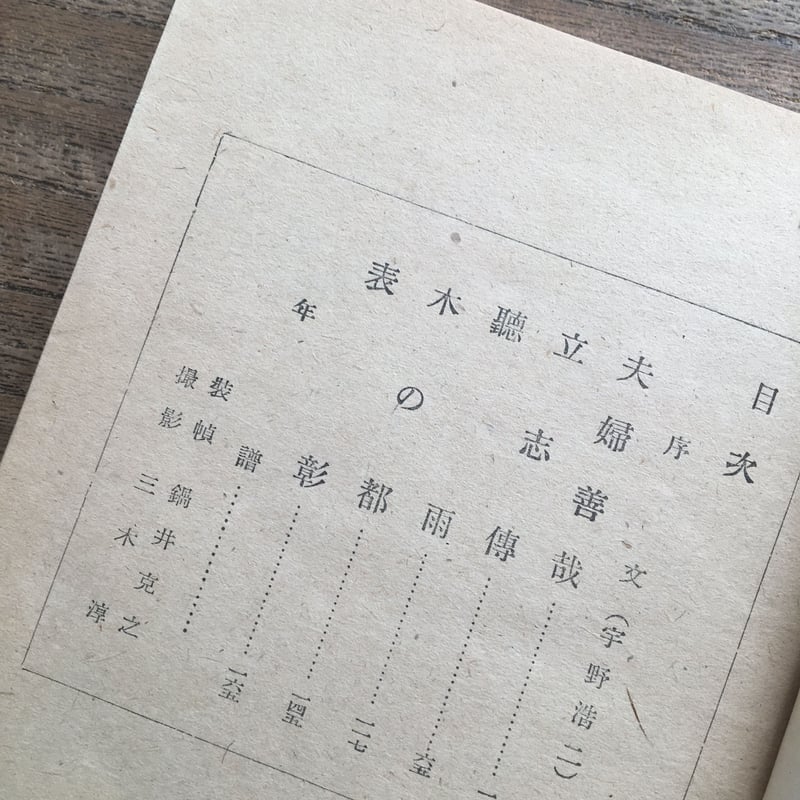 目次
序文(宇野浩二)
夫婦善哉……一
立志傳……六五
聽雨……一一七
木の都……一四五
表彰……一六五
年譜……
裝幀 鍋井克之
撮影 三木淳